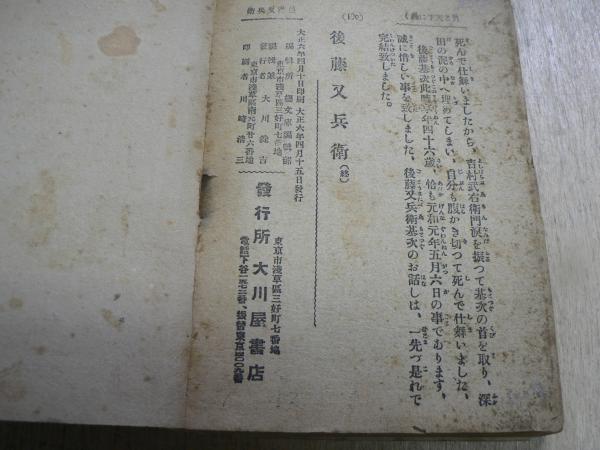 死んで仕舞いましたから、吉村武右衛門涙を振つて基次の首を取り、深
田の泥の中へ埋めてしまい、自分も腹かき切つて死んで仕舞いました、
後藤基次此時年四十六歳、恰も元和元年五月六日の事であります、
誠に惜しい事を致しました、後藤又兵衛基次のお話しは、一先づ是れで
完結致しました。
後藤又兵衛(終)
大正六年四月十日印刷 大正六年四月十五日發行
東京市淺草區三好町七番地
發行者 大川錠吉
印刷者 川崎清三
東京市淺草區三好町七番地
發行所 大川屋書店